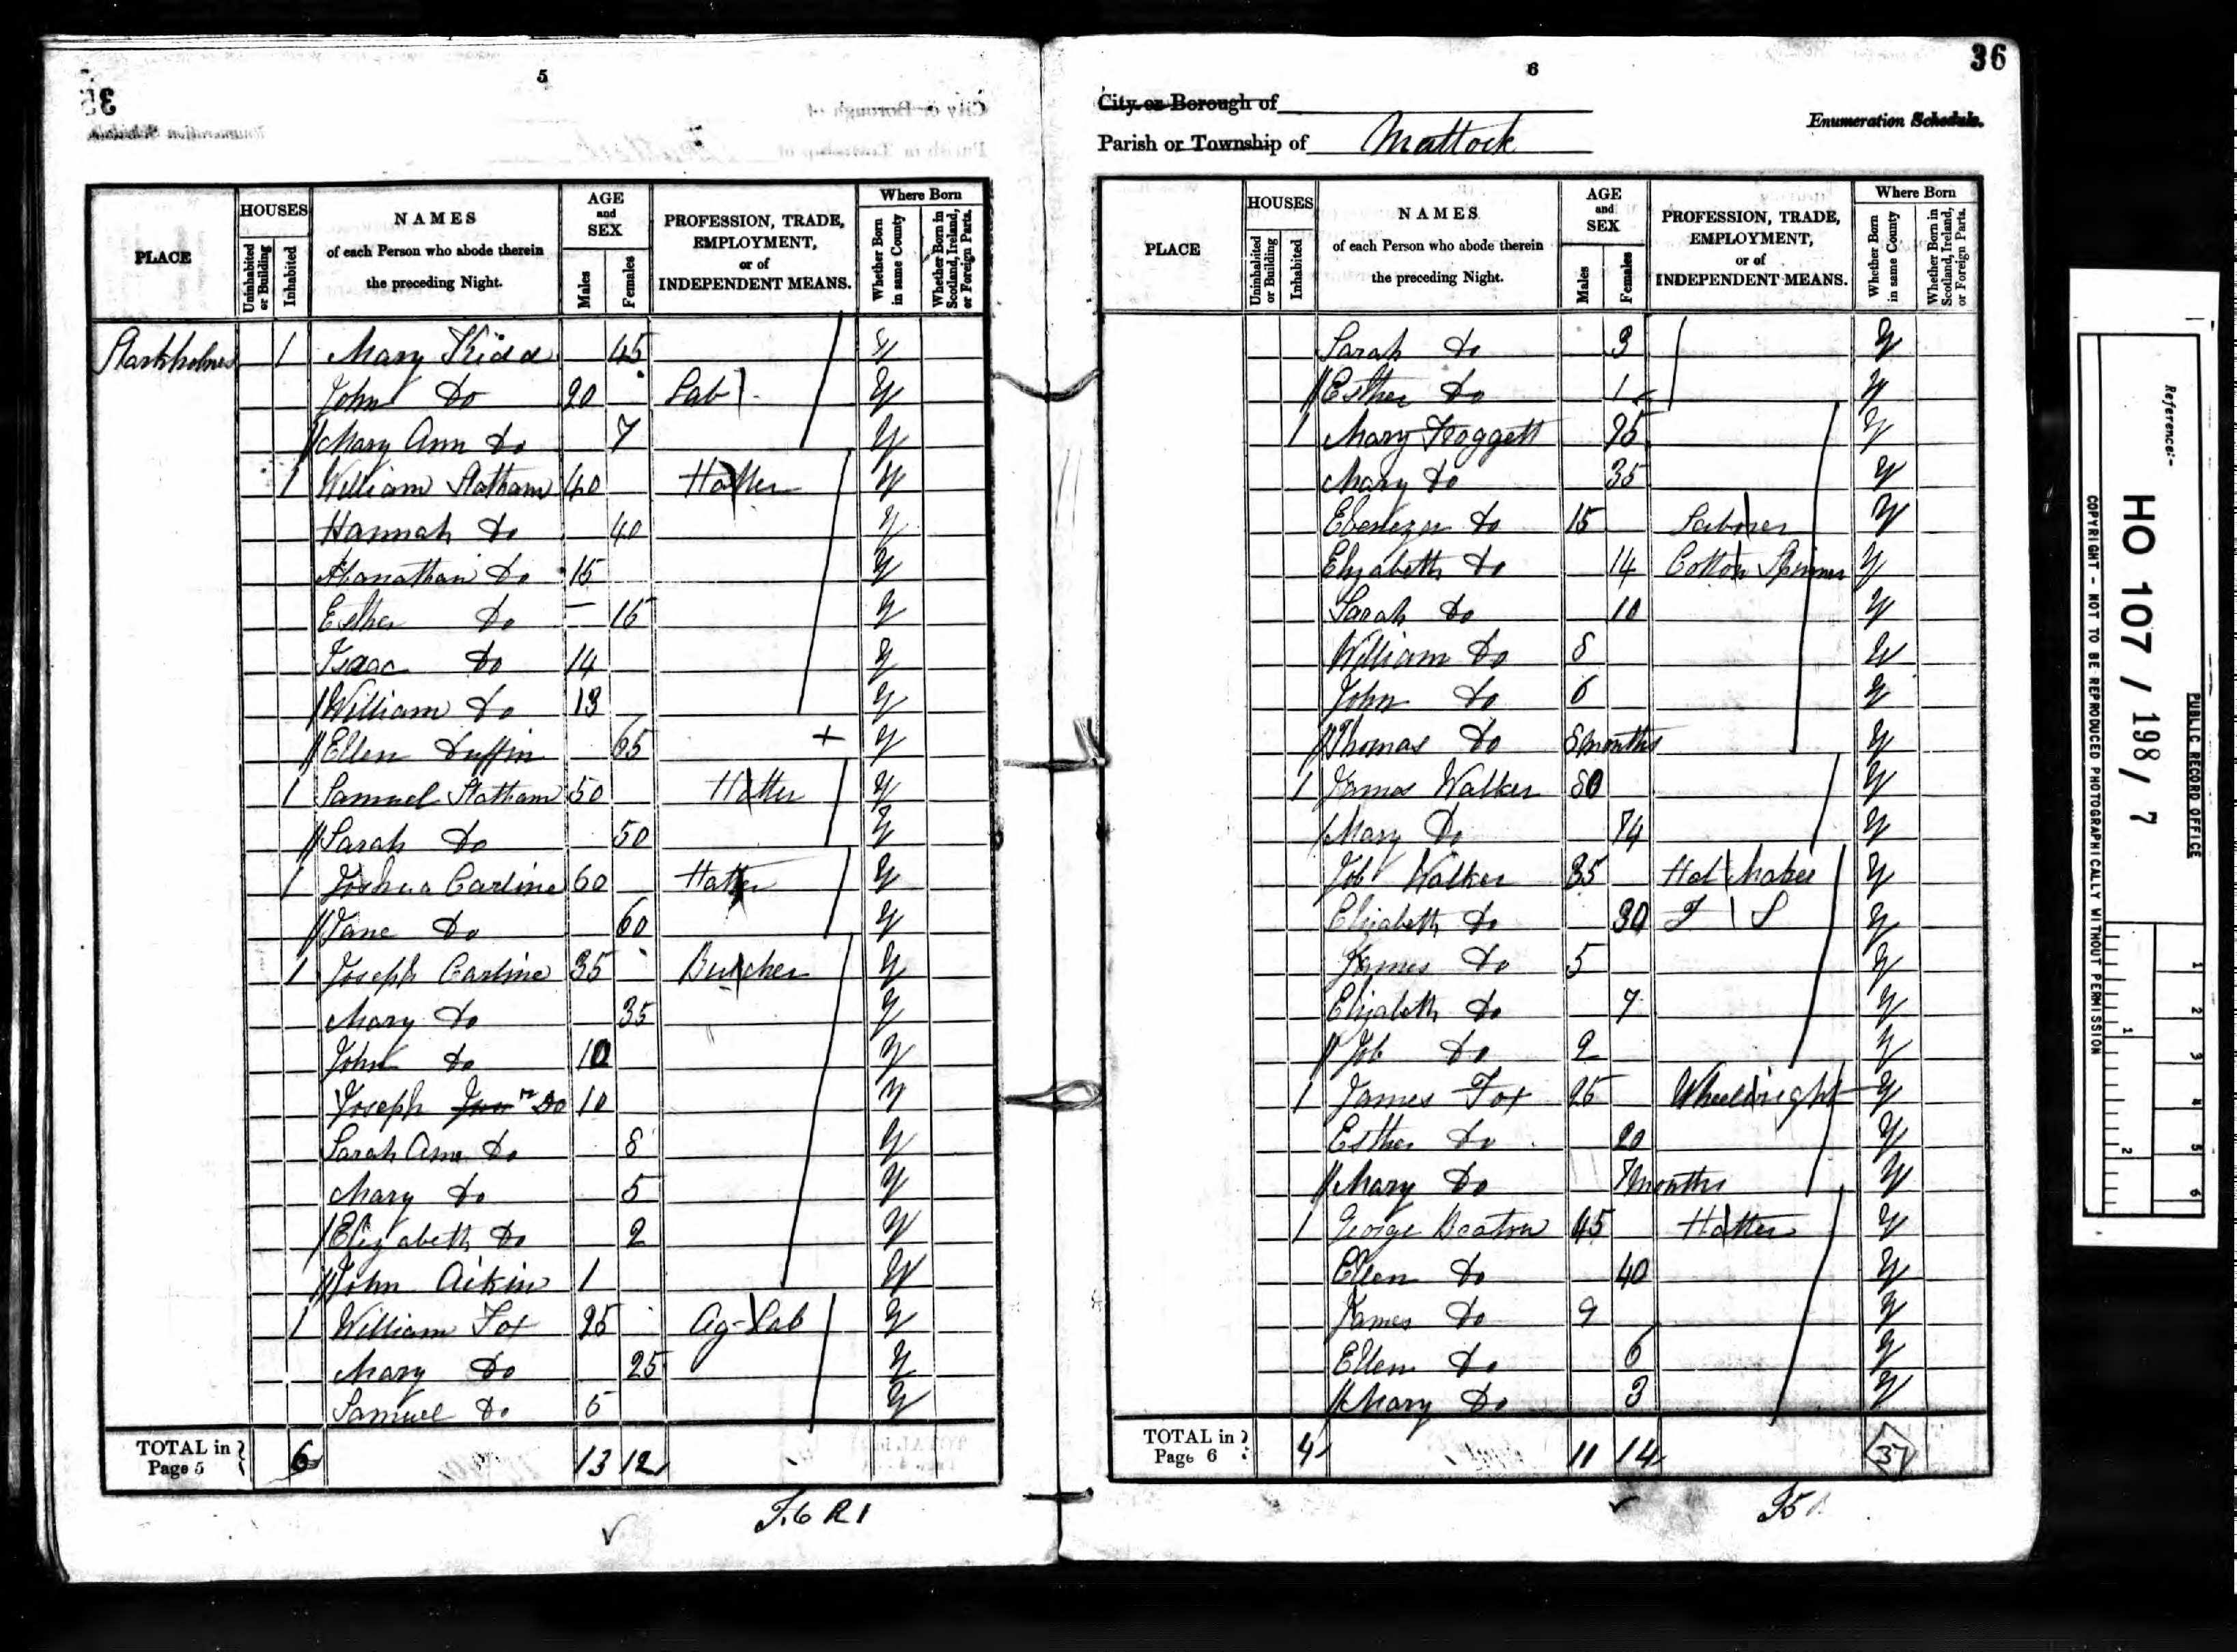 5
PLACE
HOUSES
Uninhabited or Building
Inhabited
NAMES
of each Person who abode therein
the preceding Night.
AGE
and
SEX
Males
Females
PROFESSION, TRADE,
EMPLOYMENT,
or of
INDEPENDENT MEANS.
Where Born
Whether Born in same County
Whether Born in Scotland, Ireland, or Foreign Parts.
Starkholmes 1 Mary Kidd 45 Y
John Do 20 Lab Y
Mary Ann Do 7 Y
1 William Statham 40 Hatter Y
Hannah Do 40 Y
Do 15 Y
Esther Do 15 Y
Isaac Do 14 Y
William Do 13 Y
Ellen Duffin 65 + Y
1 Samuel Statham 50 Hatter Y
Sarah Do 50 Y
1 Joshua Carline 60 Hatter Y
Jane Do 60 Y
1 Joseph Carline 35 Butcher Y
Mary Do 35 Y
John Do 10 Y
Joseph Do 10 Y
Sarah Ann Do 8 Y
Mary Do 5 Y
Elizabeth Do 2 Y
John Aikin 1 Y
1 William Fox 25 Ag-Lab Y
Mary Do 25 Y
Samuel Do 5 Y
TOTAL in Page 5 6 13 12
F.6 R1
6
36
City or Borough of
Parish or Township of Mattock
Enumeration Schedule.
PLACE
HOUSES
Uninhabited or Building
Inhabited
NAMES
of each Person who abode therein
the preceding Night.
AGE
and
SEX
Males
Females
PROFESSION, TRADE,
EMPLOYMENT,
or of
INDEPENDENT MEANS.
Where Born
Whether Born in same County
Whether Born in Scotland, Ireland, or Foreign Parts.
Sarah Do 3 Y
Esther Do 1 Y
1 Mary Foggett Y
Mary Do 35 Y
Ebenezer Do 15 Laborer Y
Elizabeth Do 14 Cotton Spinner Y
Sarah Do 10 Y
William Do 8 Y
John Do 6 Y
Thomas Do 8 months Y
1 James Walker 80 Y
Mary Do 74 Y
Job Walker 35 Hat Maker Y
Elizabeth Do 30 F S Y
James Do 5 Y
Elizabeth Do 7 Y
Job Do 2 Y
1 James Fox 25 Wheelwright Y
Esther Do 20 Y
Mary Do 7 months Y
1 George Beaton 45 Hatter Y
Ellen Do 40 Y
James Do 9 Y
Ellen Do 6 Y
Mary Do 3 Y
TOTAL in Page 6 4 11 14 37
Reference:-
HO 107 / 198 / 7
PUBLIC RECORD OFFICE
COPYRIGHT - NOT TO BE REPRODUCED PHOTOGRAPHICALLY WITHOUT PERMISSION
1 2 3 4 5 6
1 2